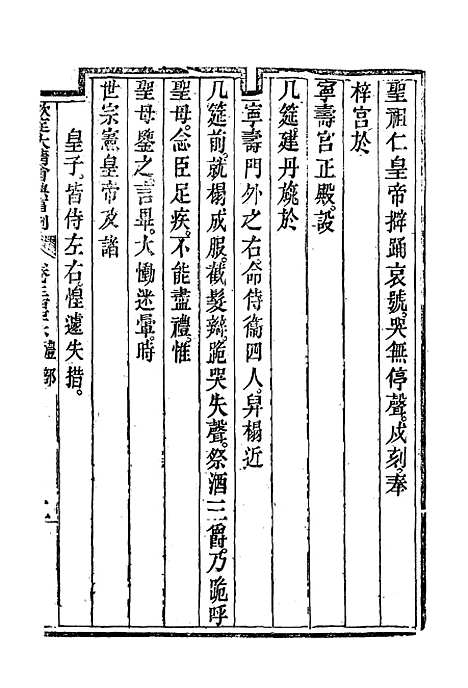 聖祖仁皇帝擗踊哀號。哭無停聲。戌刻。奉
梓宮於
寧壽宮正殿。設
几筵建丹旐於
寧壽門外之右。命侍衞四人。舁榻近
几筵前。就榻成服。截髮辮。跪哭失聲。祭酒三爵。乃跪呼
聖母。念臣足疾。不能盡禮。惟
聖母鑒之。言畢。大慟迷暈。時
世宗憲皇帝及諸
皇子。皆侍左右。惶遽失措。
欽定大清會典則例
禮部